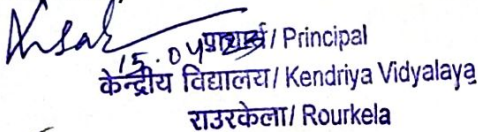 प्राचार्य/ Principal
केन्द्रीय विद्यालय/ Kendriya Vidyalaya
राउरकेला/ Rourkela